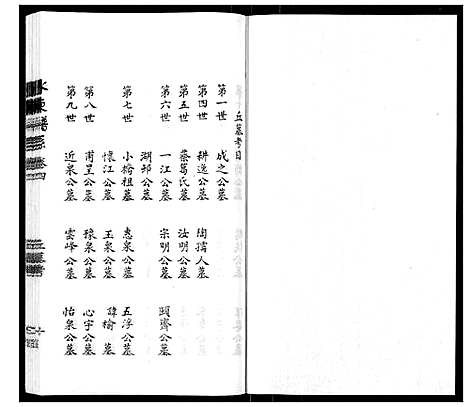 丘墓考目
第一世 成之公墓
第四世 耕逸公墓 陶孺人墓
第五世 蔡篤氏墓 汝明公墓
第六世 一江公墓 宗明公墓 頤齋公墓
湖邨公墓
第七世 小橋祖墓 惠泉公墓 五淳公墓
懷江公墓 玉泉公墓 諱榆公墓
第八世 甫呈公墓 豫泉公墓 心宇公墓
第九世 近泉公墓 雲峰公墓 怡泉公墓